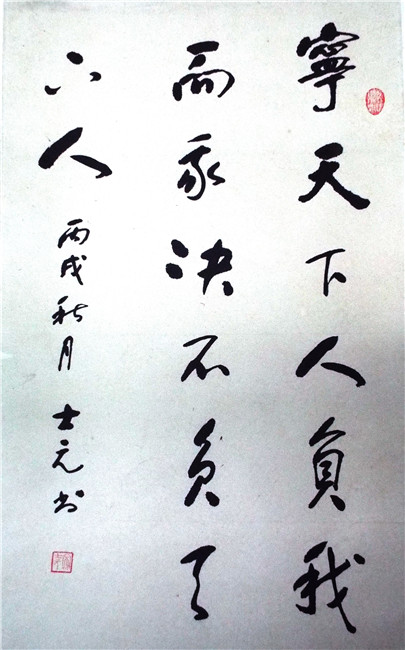 寧天下人負我
而我決不負天
下人
丙戌秋月 士元书